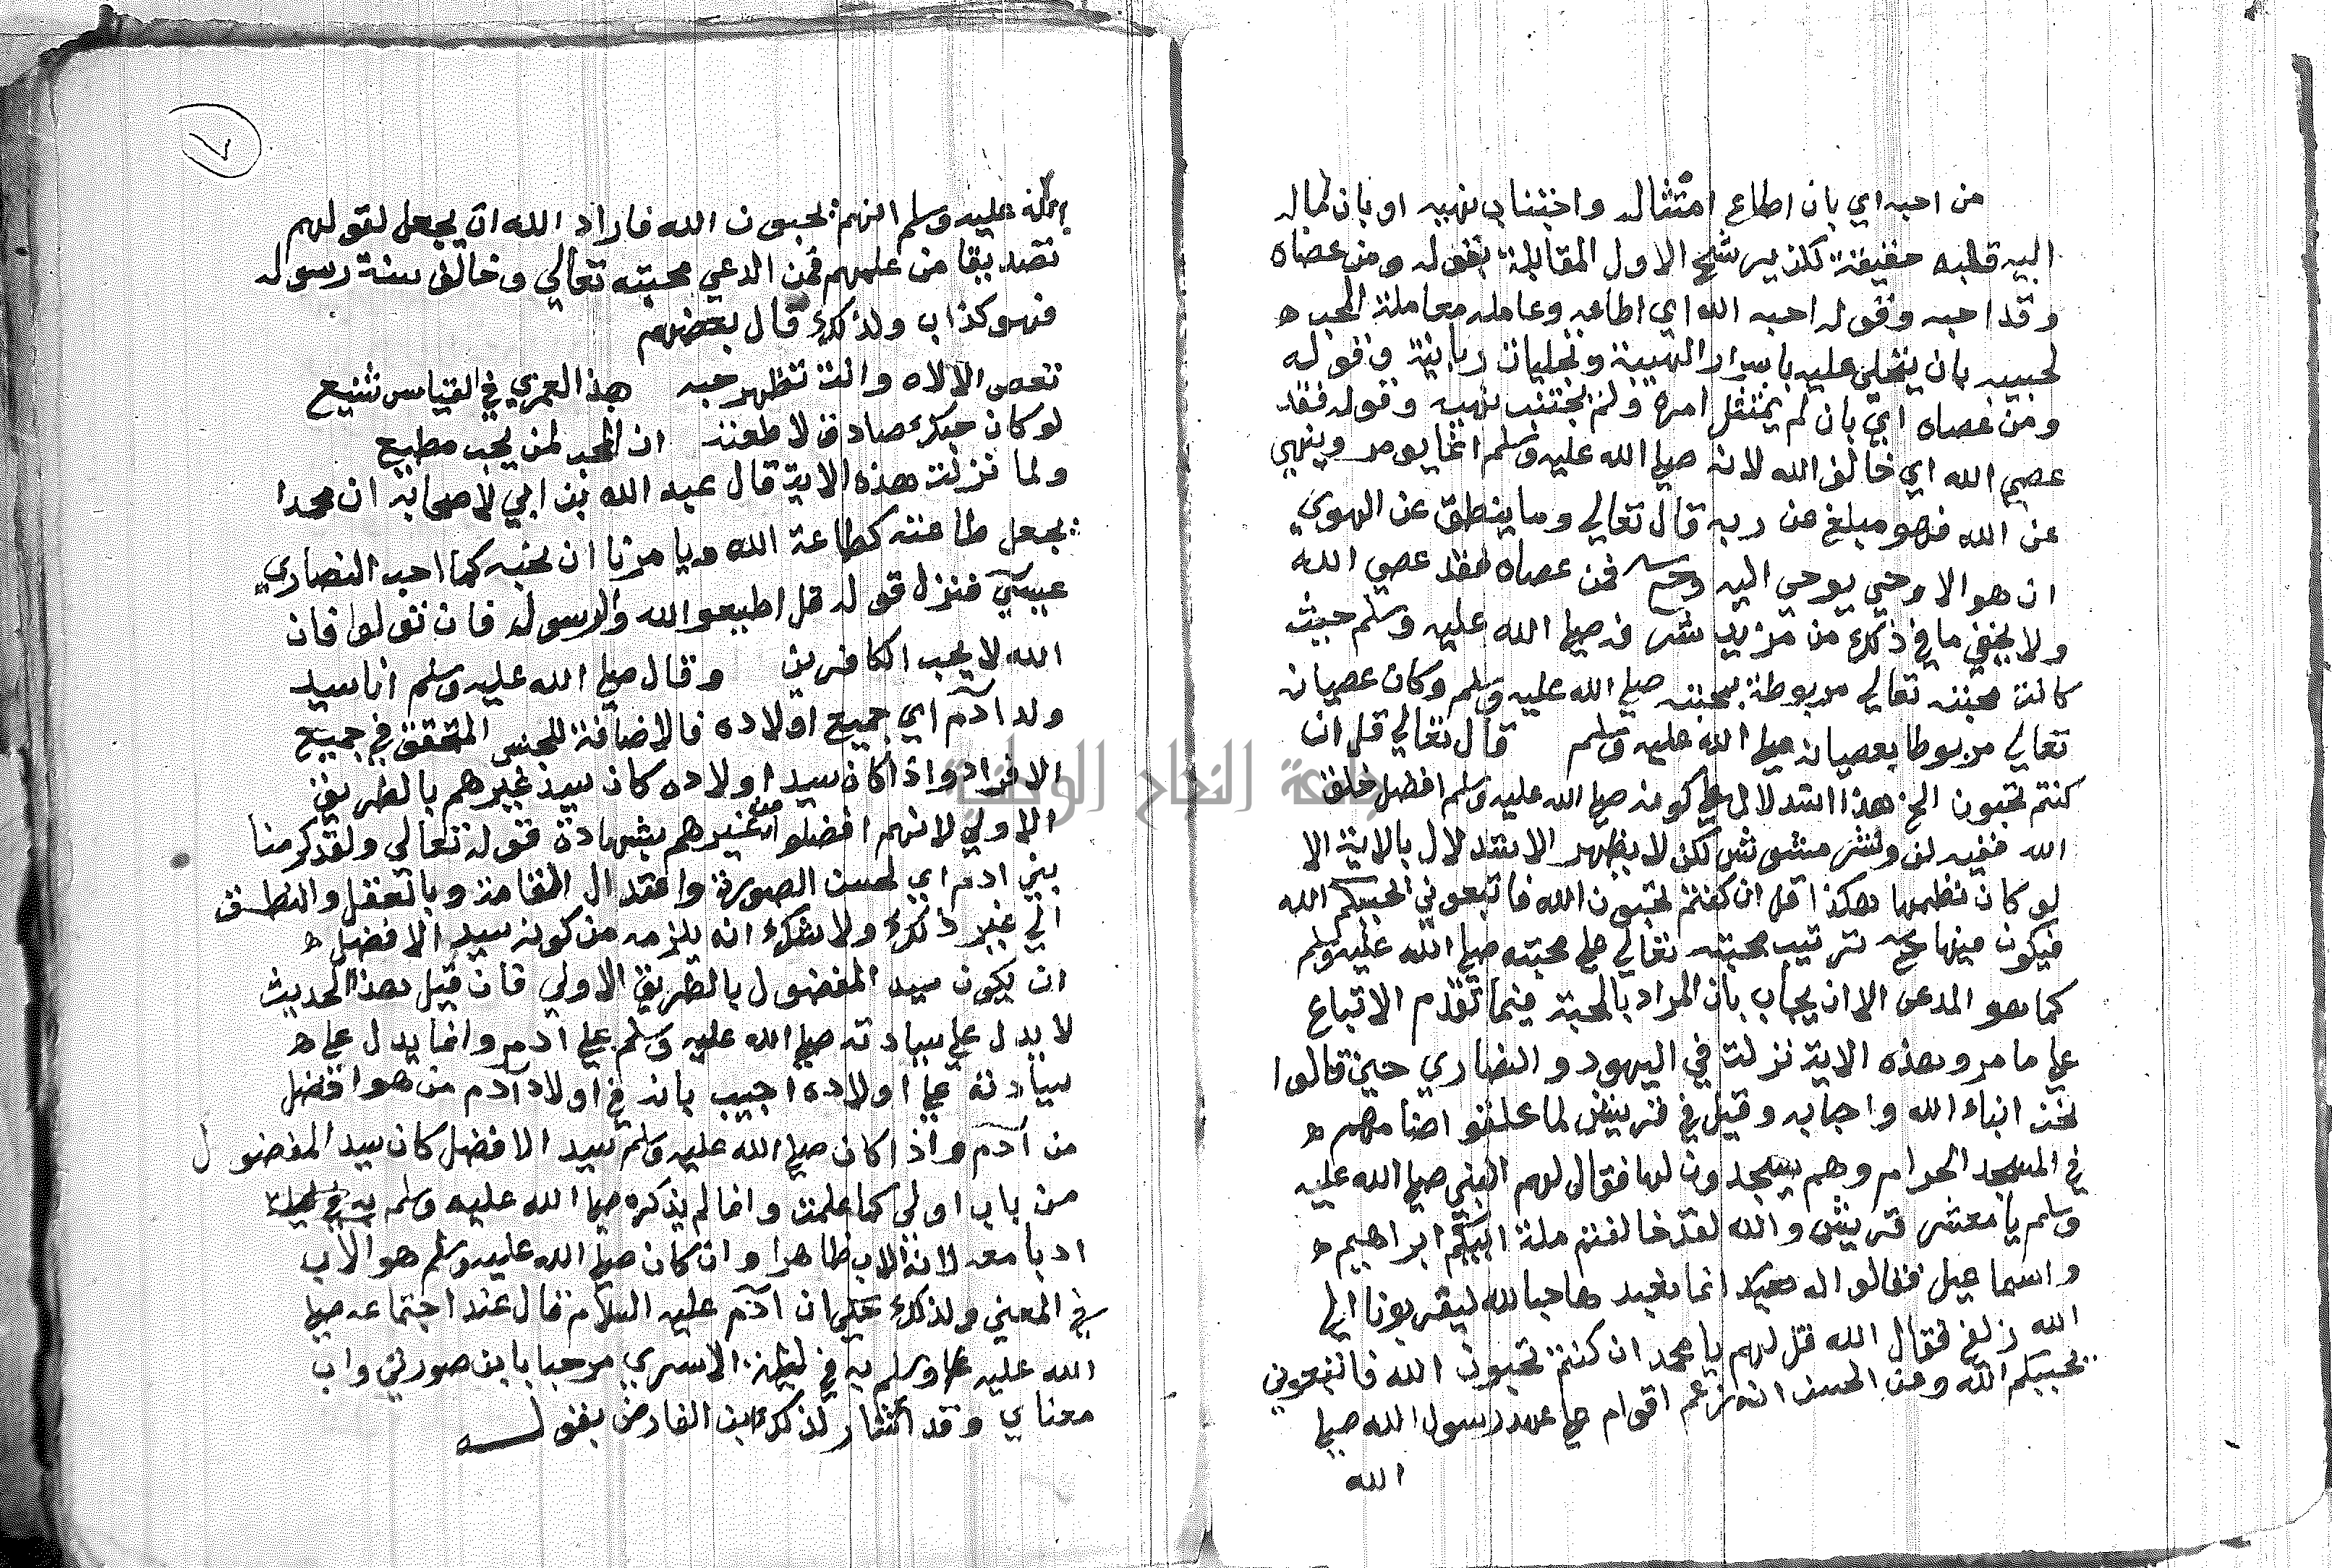 من احبه اي بان اطاع امتثاله واجتناب نهيه او بان كماله
اليه قلبه حقيقة لكن يرشح الاول المقابلة بقوله ومن عصاه
وقد احبه وقوله احبه الله اي اطاعه وعامله معاملة المحب
لحبيبه بان يتجلى عليه باسرار الهيبة وتجليات ربانية وقوله
ومن عصاه اي بان لم يمتثل امره ولم يجتنب نهيه وقوله فقد
عصي الله اي خالف الله لانه صلى الله عليه وسلم انما يومر وينهي
عن الله فهو مبلغ عن ربه قال تعالي وما ينطق عن الهوي
ان هو الا وحي يوحي اليه وحـ فمن عصاه فقد عصي الله
ولا يخفي ما في ذلك من مزيد شرفه صلى الله عليه وسلم حيث
كانت محبته تعالي مربوطة بمحبته صلى الله عليه وسلم وكان عصيانه
تعالي مربوطا بعصيانه صلى الله عليه وسلم قال تعالي قل ان
كنتم تحبون الخ هذا استدلال علي كونه صلى الله عليه وسلم افضل خلق
الله ففيه لف ونشر مشوش لكن لا يظهر الاستدلال بالاية الا
لو كان نظمها هكذا قل ان كنتم تحبون الله فاتبعوني احببكم الله
فيكون فيها ح ترتيب محبته تعالي علي محبته صلى الله عليه وسلم
كما هو المدعى الا ان يجاب بان المراد بالمحبة فيما تقدم الاتباع
علي ما مر وهذه الاية نزلت في اليهود والنصاري حين قالوا
نحن ابناء الله واحبابه وقيل في قريش لما علقوا اصنامهم
في المسجد الحرام وهم يسجدون لها فقال لهم النبي صلى الله عليه
وسلم يا معشر قريش والله لقد خالفتم ملة ابيكم ابراهيم
واسماعيل فقالوا له انما نعبد حبا لله ليقربونا الي
الله زلفي فقال الله قل لهم يا محمد ان كنتم تحبون الله فاتبعوني
يحببكم الله وعن الحسن انه زعم اقوام علي عهد رسول الله صلى
الله
٧
الله عليه وسلم انهم يحبون الله فاراد الله ان يجعل لقولهم
تصديقا من عملهم فمن ادعي محبته تعالي وخالف سنة رسوله
فهو كذاب ولذلك قال بعضهم
تعصى الالاه وانت تظهر حبه هذا لعمري في القياس شنيع
لو كان حبك صادقا لاطعته ان المحب لمن يحب مطيع
ولما نزلت هذه الاية قال عبد الله بن ابي لاصحابه ان محمدا
يجعل طاعته كطاعة الله ويامرنا ان نحبه كما احب النصاري
عيسي فنزل قوله قل اطيعوا الله والرسول فان تولوا فان
الله لا يحب الكافرين وقال صلى الله عليه وسلم انا سيد
ولد آدم اي جميع اولاده فالاضافة للجنس المتحقق في جميع
الافراد واذا كان سيد اولاده كان سيد غيرهم بالطريق
الاولي لانهم افضلوا من غيرهم بشهادة قوله تعالي ولقد كرمنا
بني ادم اي لحسن الصورة واعتدال القامة وبالعقل والنطق
الي غير ذلك ولا شك انه يلزمه من كونه سيد الافضل
ان يكون سيد المفضول بالطريق الاولي فان قيل هذا الحديث
لا يدل علي سيادته صلى الله عليه وسلم علي ادم وانما يدل علي
سيادته علي اولاده اجيب بان في اولاد آدم من هو افضل
من آدم واذا كان صلى الله عليه وسلم سيد الافضل كان سيد المفضول
من باب اولى كما علمت وانما لم يذكره صلى الله عليه وسلم
ادبا معه لانه الاب ظاهرا وان كان صلى الله عليه وسلم هو الاب
في المعني ولذلك حكي ان آدم عليه السلام قال عند اجتماعه صلى
الله عليه وسلم به في ليلة الاسري مرحبا بابن صورتي واب
معناي وقد اشار لذلك ابن الفارض بقوله